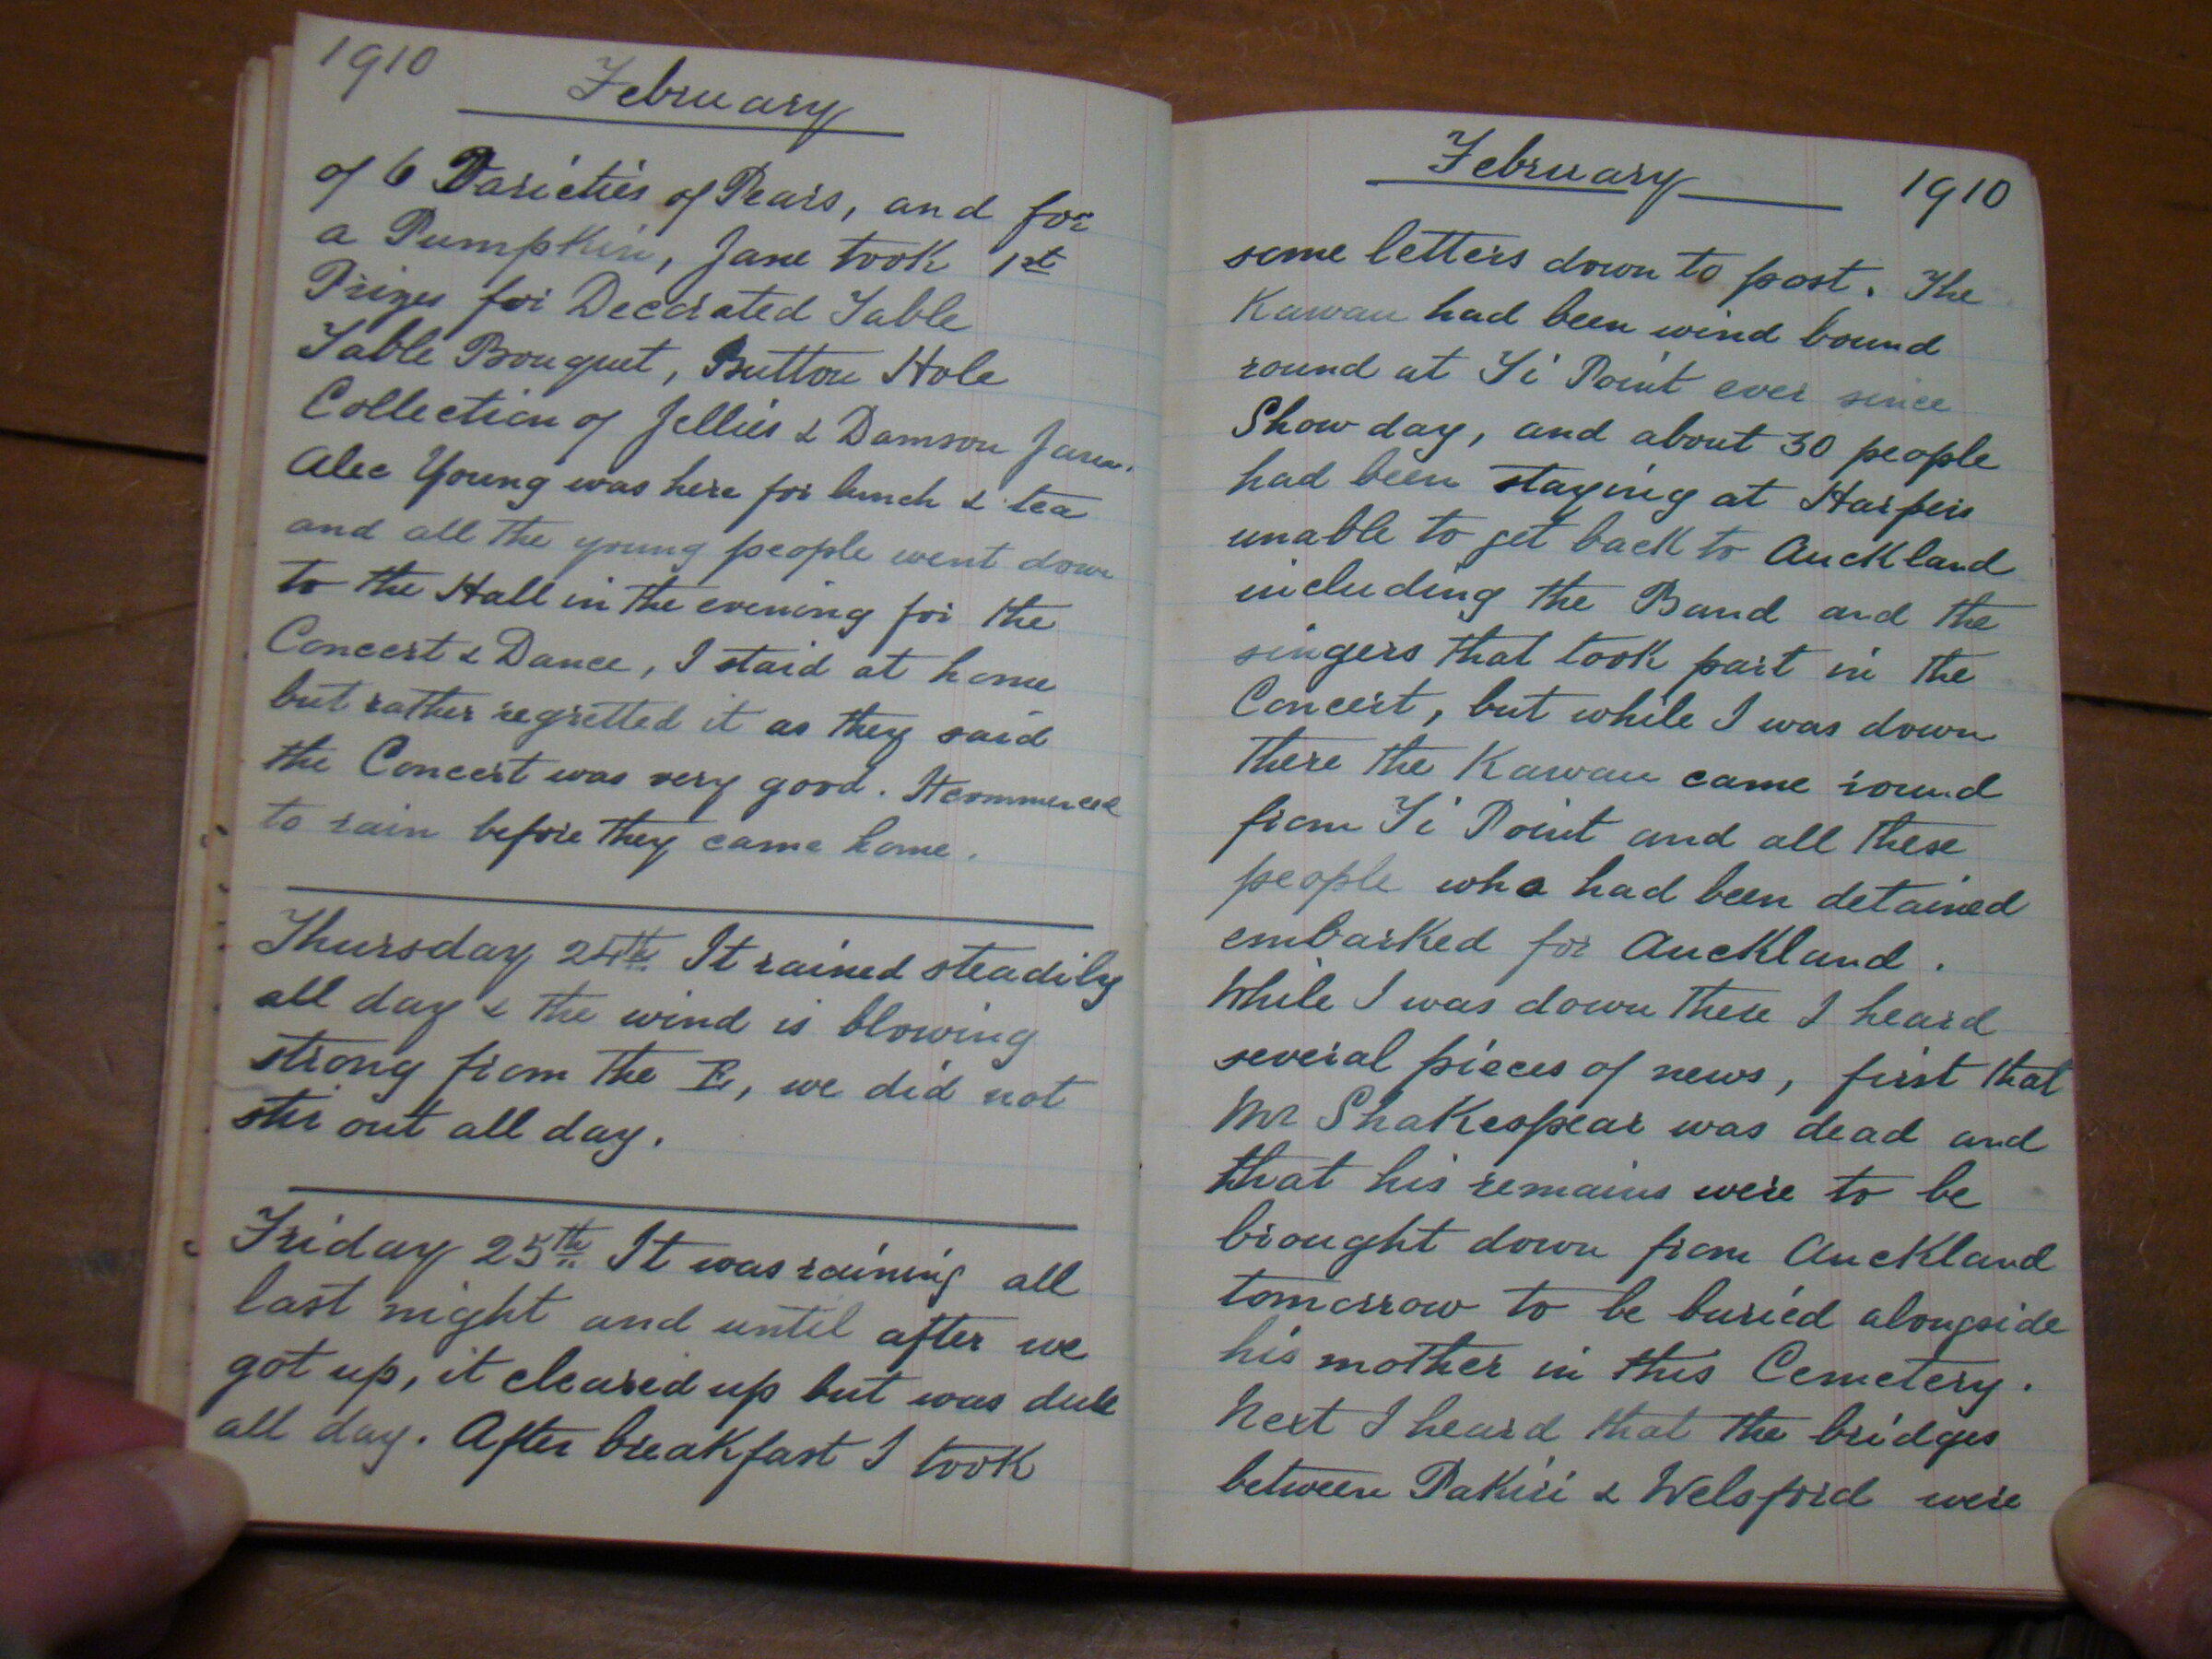 1910
February
of 6 Varieties of Pears, and for
a Pumpkin, Jane took 1st
Prizes for Decorated Table
Table Bouquet, Button Hole
Collection of Jellies & Damson Jam.
Alec Young was here for lunch & tea
and all the young people went down
to the Hall in the evening for the
Concert & Dance, I staid at home
but rather regretted it as they said
the Concert was very good. It commenced
to rain before they came home.
Thursday 24th It rained steadily
all day & the wind is blowing
strong from the E, we did not
stir out all day.
Friday 25th It was raining all
last night and until after we
got up, it cleared up but was dull
all day. After breakfast I took
February 1910
some letters down to post. The
Kawau had been wind bound
round at Ti Point ever since
Show day, and about 30 people
had been staying at Harpers
unable to get back to Auckland
including the Band and the
singers that took part in the
Concert, but while I was down
there the Kawau came round
from Ti Point and all these
people who had been detained
embarked for Auckland.
While I was down there I heard
several pieces of news, first that
Mr Shakespear was dead and
that his remains were to be
brought down from Auckland
tomorrow to be buried alongside
his mother in this Cemetery.
Next I heard that the bridges
between Pakiri & Welsford were